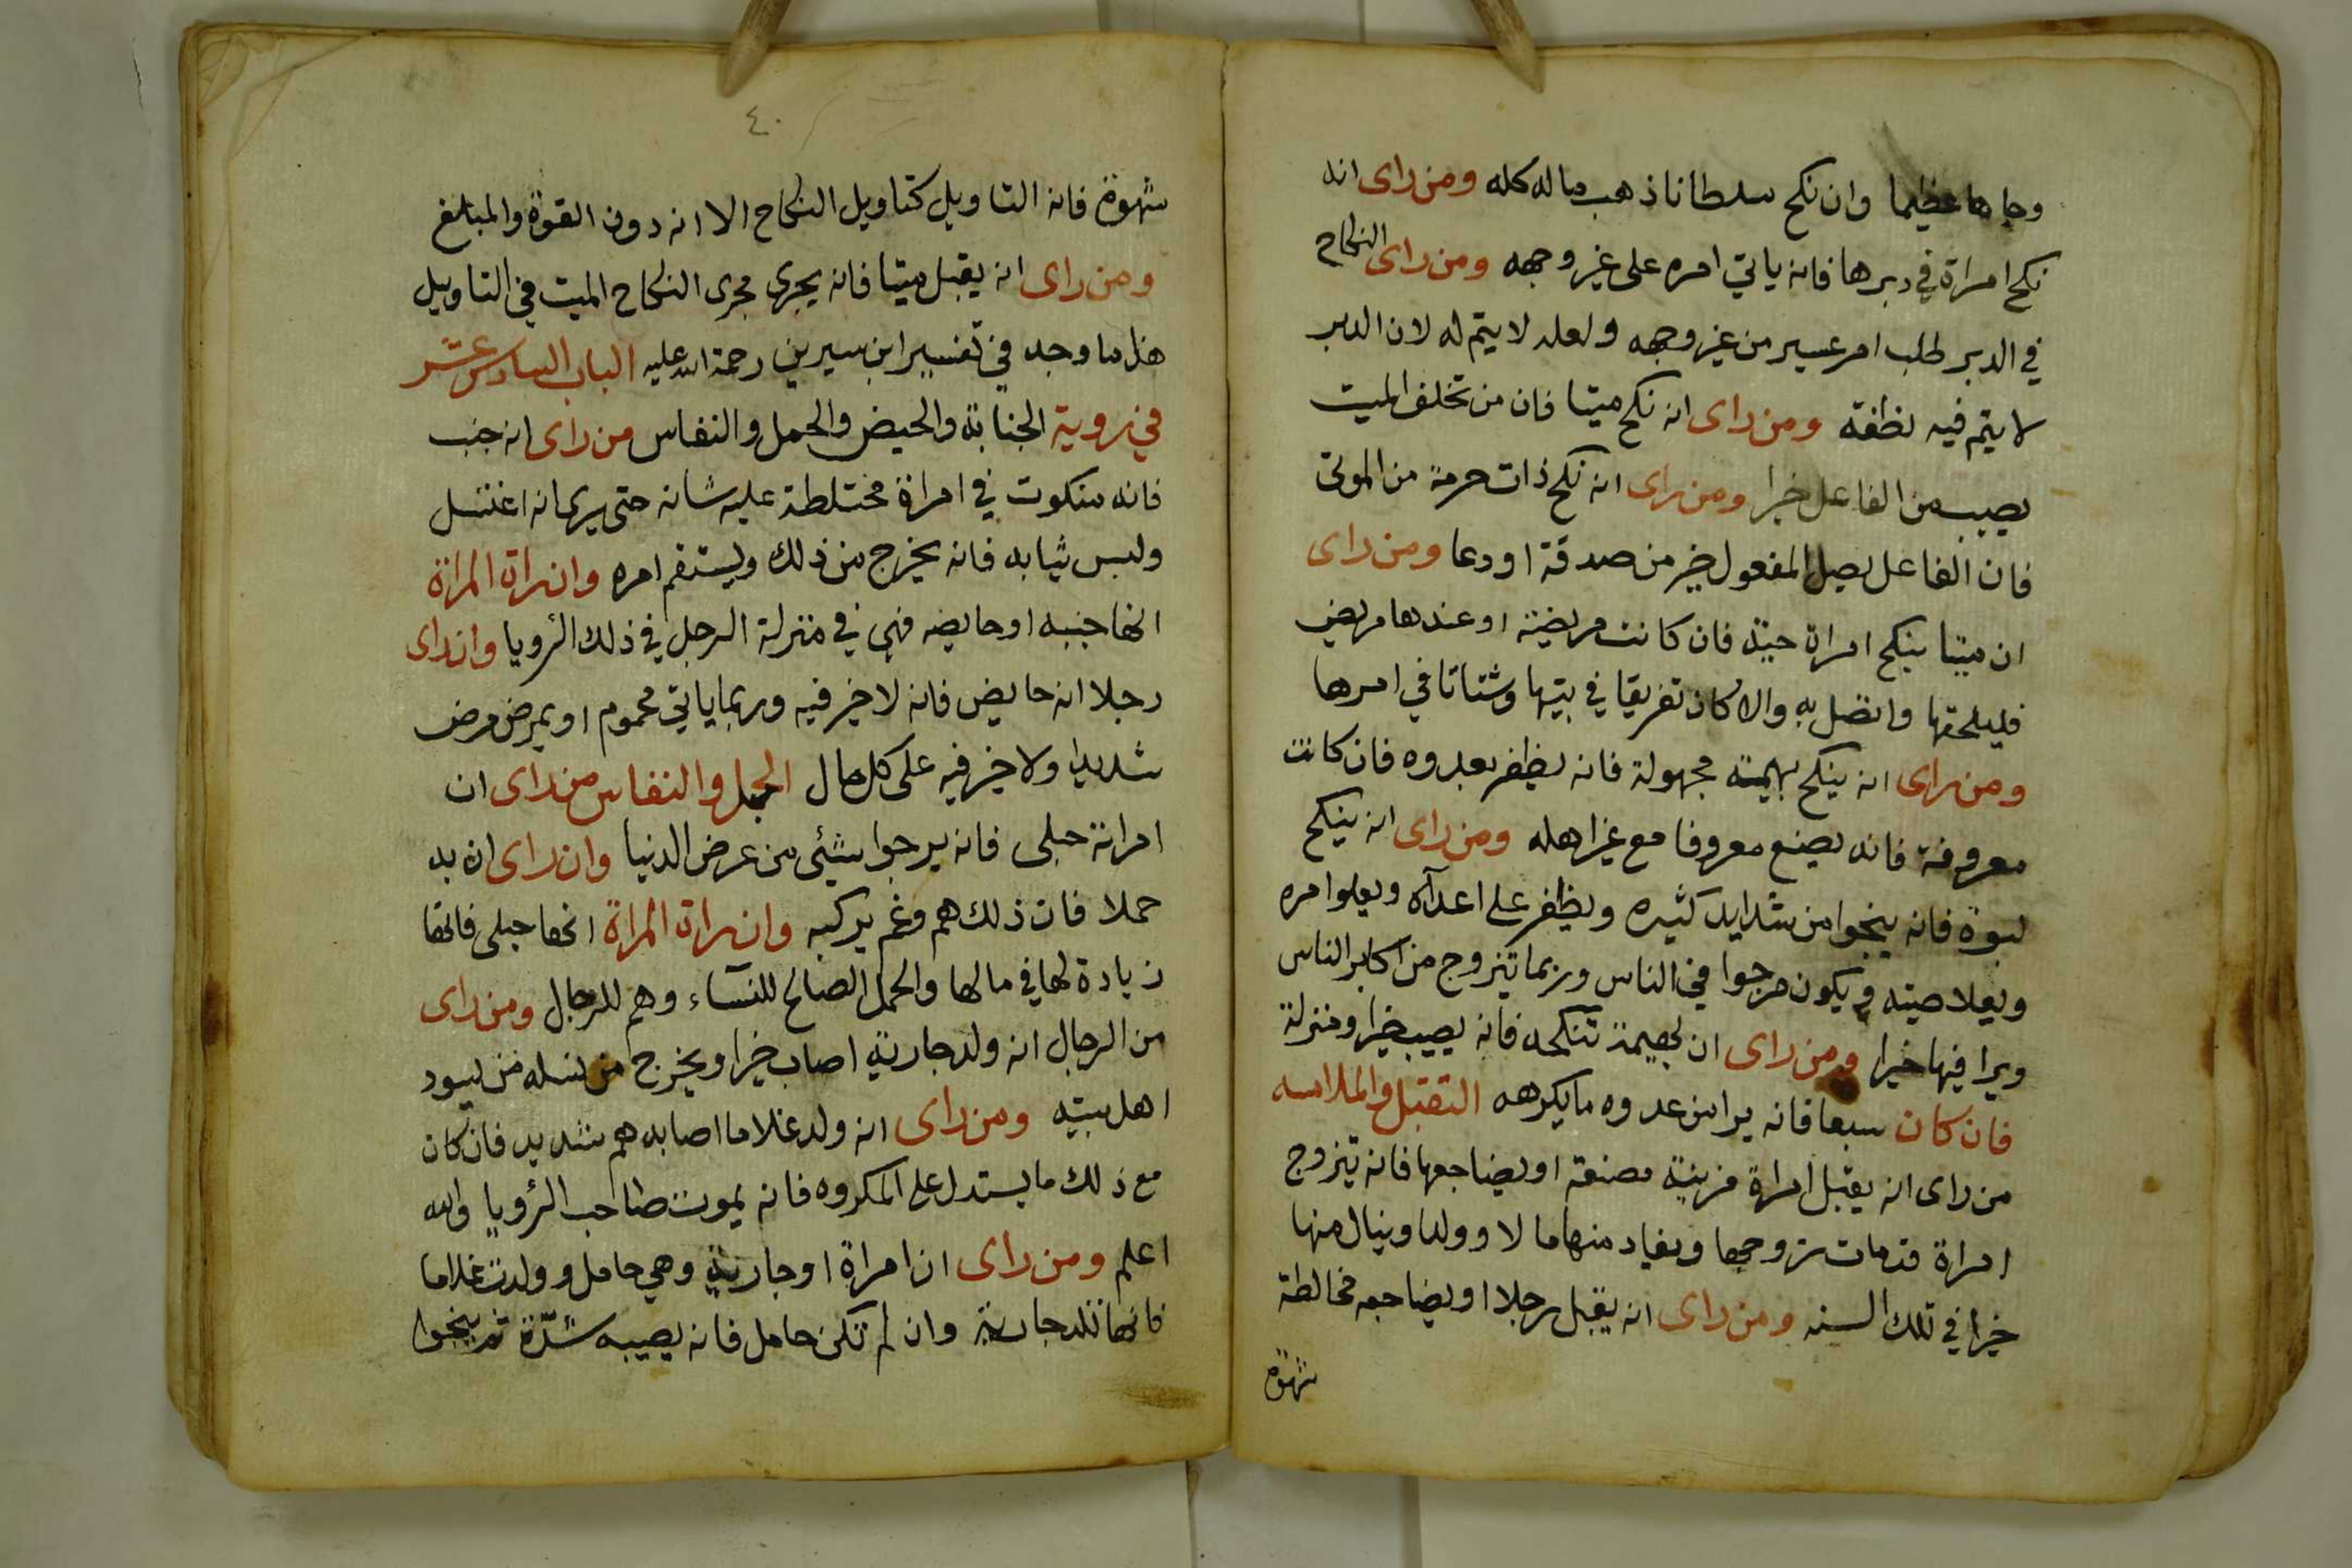 وجاها عظيما وان نكح سلطانا ذهب ماله كله ومن راى انه
نكح امراة في دبرها فانه ياتي امره على غير وجهه ومن راى النكاح
في الدبر طلب امر عسير من غير وجهه ولعله لا يتم له لان الدبر
لا يتم فيه نطفة ومن راى انه نكح ميتا فان من تخلف الميت
يصيب من الفاعل خيرا ومن راى انه نكح ذات حرمة من الموتى
فان الفاعل يصل المفعول خير من صدقة او دعا ومن راى
ان ميتا ينكح امراة حية فان كانت مريضة او عندها مريض
فليلحقها واتصل به والا كان تفريقا في بيتها وشتاتا في امرها
ومن راى انه ينكح بهيمة مجهولة فانه يظفر بعدوه فان كانت
معروفة فانه يصنع معروفا مع غير اهله ومن راى انه ينكح
لبوة فانه ينجوا من شدايد كثيره ويظفر على اعدآه ويعلوا امره
ويعلا صيته ويكون مرجوا في الناس وربما تزوج من اكابر الناس
ويرا فيها خيرا ومن راى ان بهيمة تنكحه فانه يصيب خيرا ومنزلة
فان كان سبعا فانه يرا من عدوه ما يكرهه التقبل والملامسه
من راى انه يقبل امراة مزينة مصنعة او يضاجعها فانه يتزوج
امراة قد مات زوجها ويفاد منها مالا وولدا وينال منها
خيرا في تلك السنه ومن راى انه يقبل رجلا او يضاجعه مخالطة
شهوة
٤٠
شهوة فانه التاويل كتاويل النكاح الا انه دون القوة والمبلغ
ومن راى انه يقبل ميتا فانه يجرى مجرى النكاح الميت في التاويل
هذا ما وجد في تفسير ابن سيرين رحمة الله عليه الباب السادس عشر
في روية الجنابة والحيض والحمل والنفاس من راى انه جنب
فانه سكوت في امراة مختلطة عليه شانه حتى يرى انه اغتسل
ولبس ثيابه فانه يخرج من ذلك ويستقم امره وان راة المراة
انها جنبه او حايضه فهي في منزلة الرجل في ذلك الرويا وان راى
رجلا انه حايض فانه لا خير فيه وربما ياتي محموم او يمرض مرض
شديدا ولا خير فيه على كل حال الحبل والنفاس من راى ان
امراته حبلى فانه يرجوا شئي من عرض الدنيا وان راى ان به
حملا فان ذلك هم وغم يركبه وان راة المراة انها حبلى فانها
زيادة لها في مالها والحمل الصالح للنسآء وهم للرجال ومن راى
من الرجال انه ولد جارية اصاب خيرا ويخرج من نسله من يسود
اهل بيته ومن راى انه ولد غلاما اصابه هم شديد فان كان
مع ذلك ما يستدل على المكروه فانه يموت صاحب الرؤيا والله
اعلم ومن راى ان امراة او جارية وهي حامل وولدت غلاما
فانها تلد جارية وان لم تكن حامل فانه يصيبه شدّة ثم ينجوا